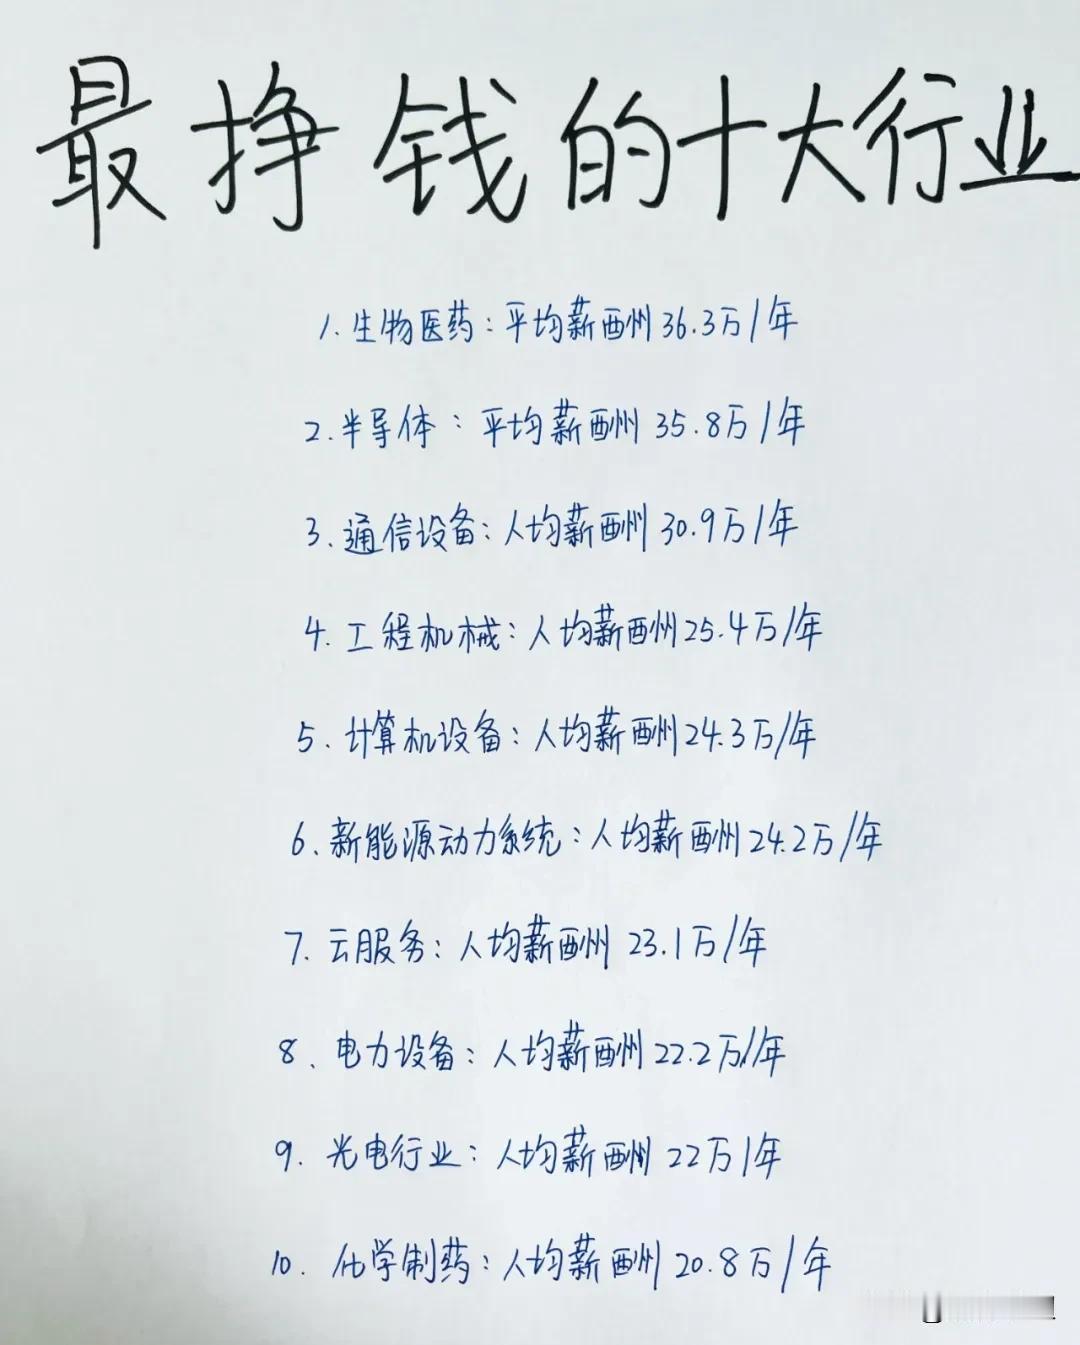 最挣钱的十大行业
1.生物医药：平均薪酬36.3万/年
2.半导体：平均薪酬35.8万/年
3.通信设备：人均薪酬30.9万/年
4.工程机械：人均薪酬25.4万/年
5.计算机设备：人均薪酬24.3万/年
6.新能源动力系统：人均薪酬24.2万/年
7.云服务：人均薪酬23.1万/年
8、电力设备：人均薪酬22.2万/年
9.光电行业：人均薪酬22万/年
10.化学制药：人均薪酬20.8万/年